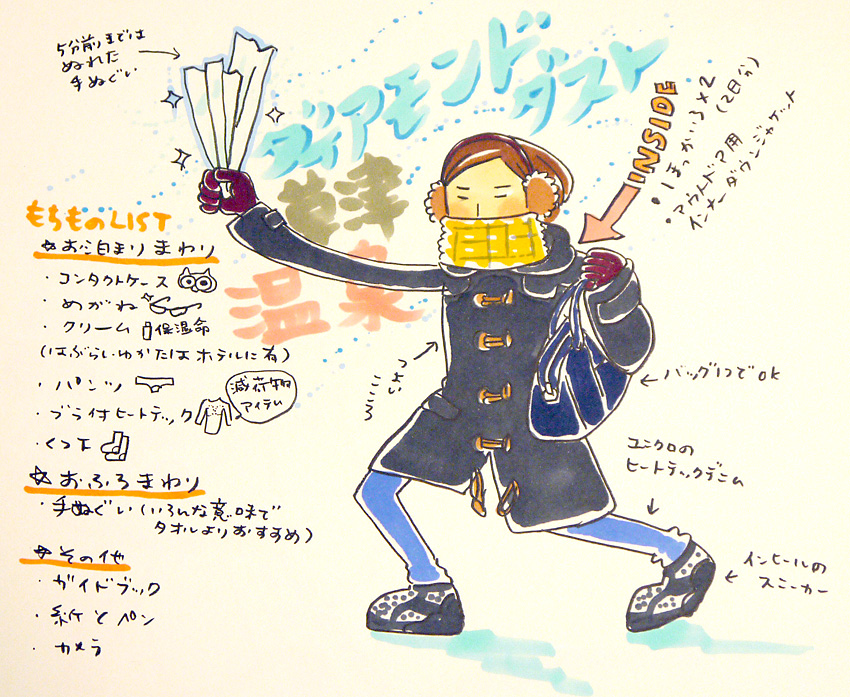 5分前までは
ぬれた
手ぬぐい
ダイアモンド
ダスト
草津
温泉
INSIDE
・はっかいろ×2
(2日分)
・アウトドア用
インナーダウンジャケット
もちものLIST
☆お泊まりまわり
・コンタクトケース
・めがね
・クリーム 保温命
(はぶらしゆかたはホテルに有)
・パンツ
・ブラ付ヒートテック
減荷物
アイテム
・くつ下
☆おふろまわり
・手ぬぐい(いろんな意味で
タオルよりおすすめ)
☆その他
・ガイドブック
・紙とペン
・カメラ
つよい
こころ
バッグ1つでOK
ユニクロの
ヒートテックデニム
インヒールの
スニーカー